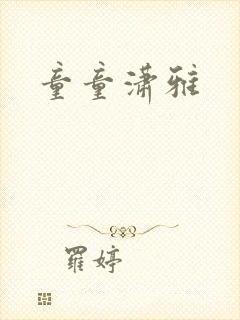 童童潇雅
羅婷